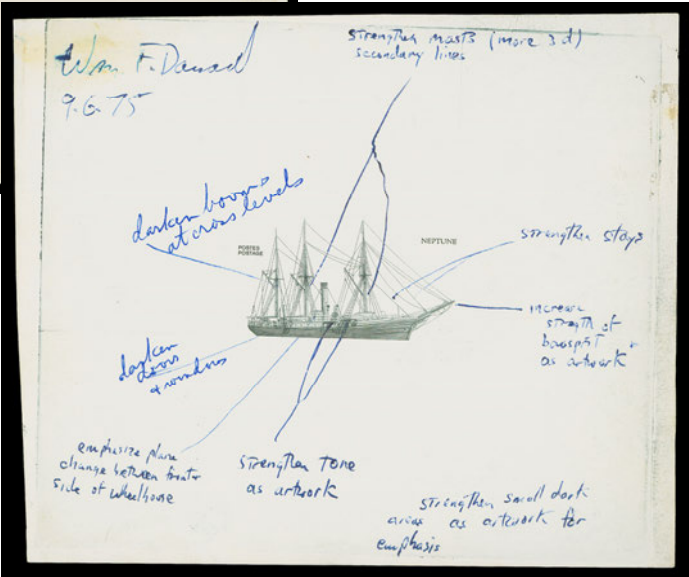 Strengthen masts (more 3d)
secondary lines
Wm F.
9.6.75
darken booms
at cross levels
POSTES
POSTAGE
NEPTUNE
strengthen stays
increase
strength of
bowsprit
as artwork
darken
doors
+ windows
emphasize plane
change between front +
side of wheelhouse
Strengthen tone
as artwork
strengthen small dark
areas as artwork for
emphasis